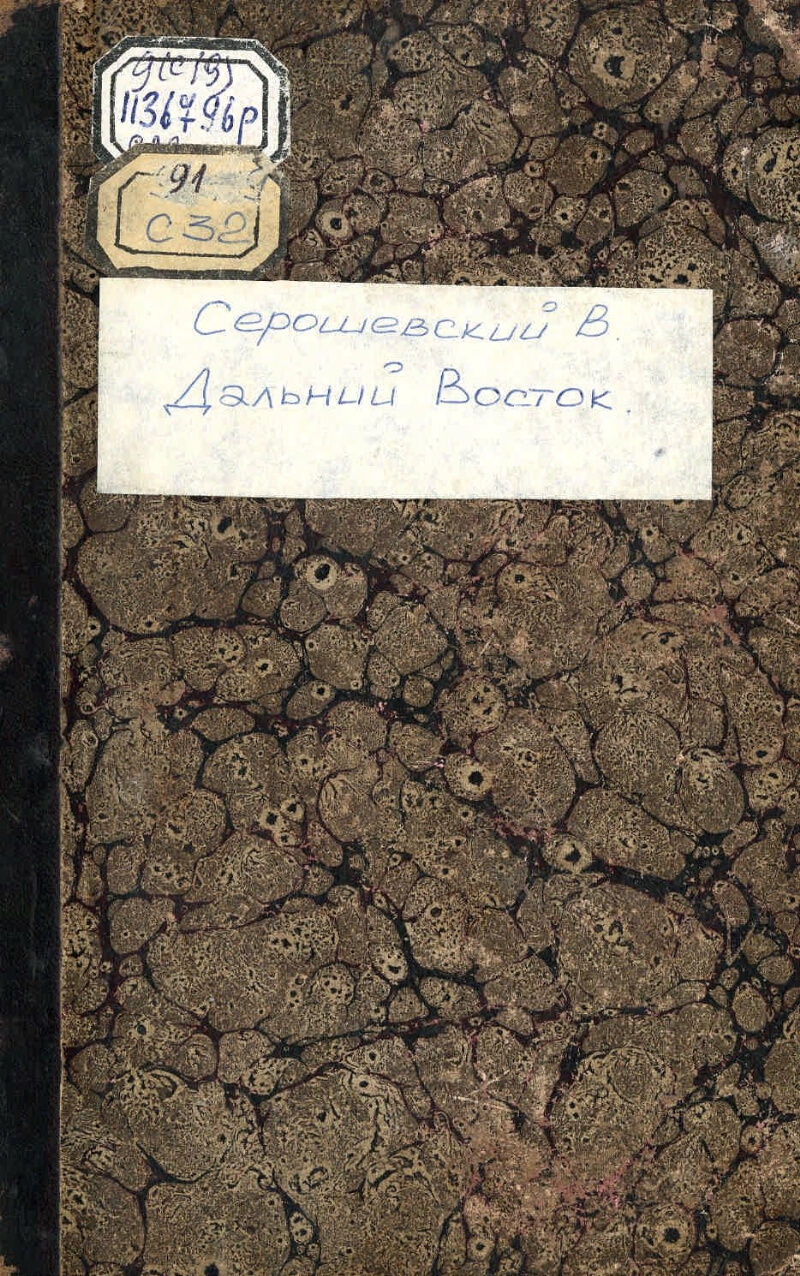 9(с19)
1136796р
91
С 32
Серошевский В.
Дальний Восток.